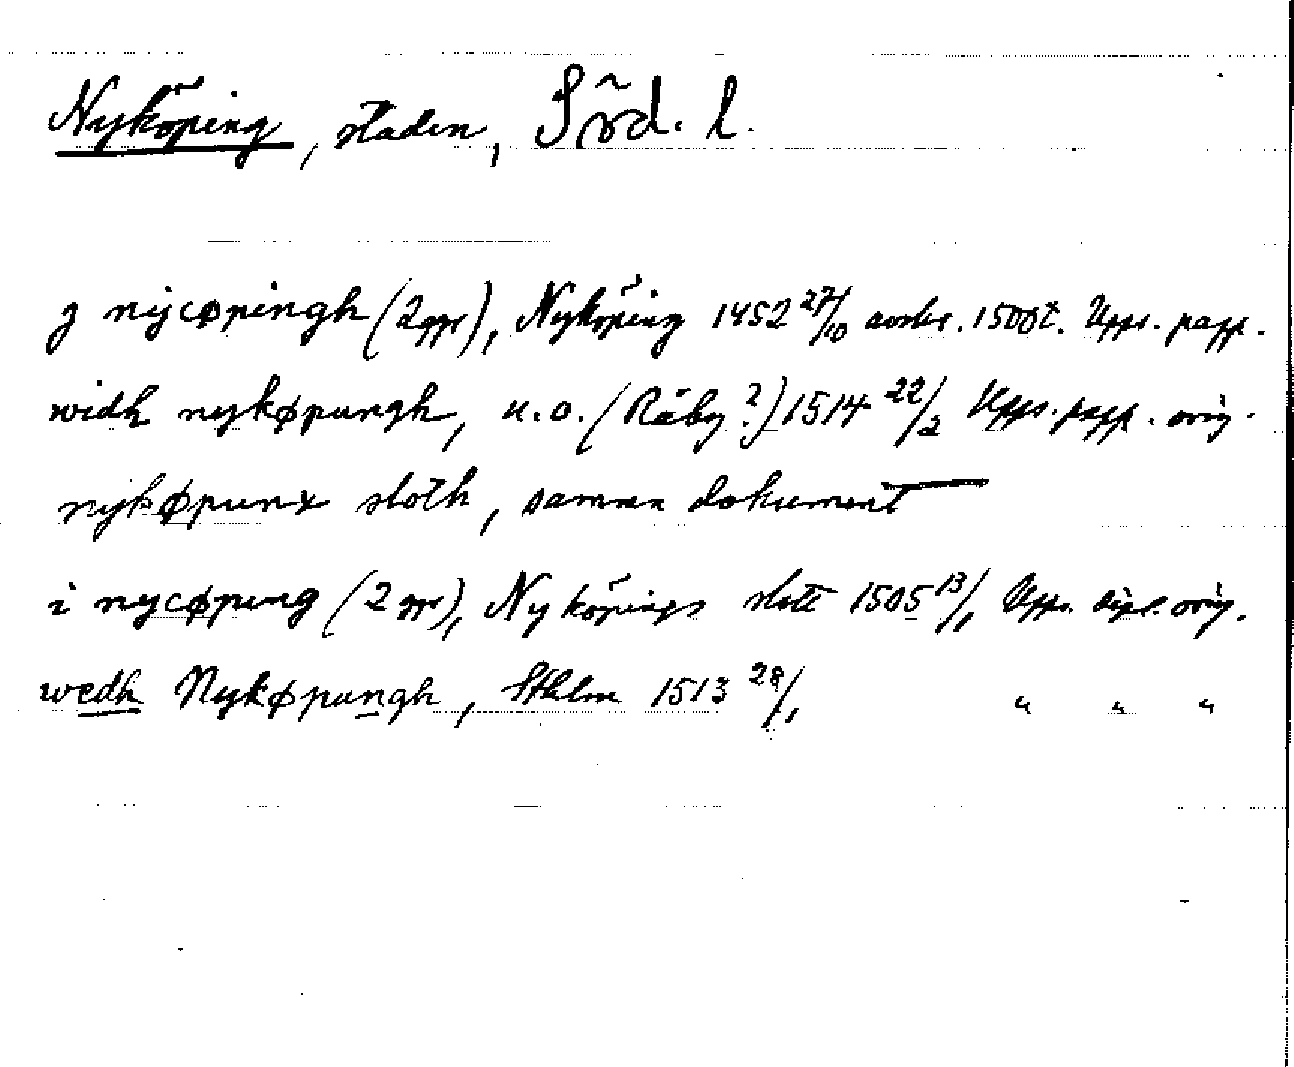 Nyköping, staden, Söd. l.
j nycøpingh (2 ggr), Nyköping 1452 27/10 avskr. 1500t. Upps. papp.
widh nykøpungh, u.o. (Råby?) 1514 22/2 Upps. papp. orig.
nykøpunx sloth, samma dokument
i nycøping (2 ggr), Nyköpings slott 1505 13/1 Upps. dipl. orig.
wedh Nykøpungh, Sthlm 1513 28/1 " " "